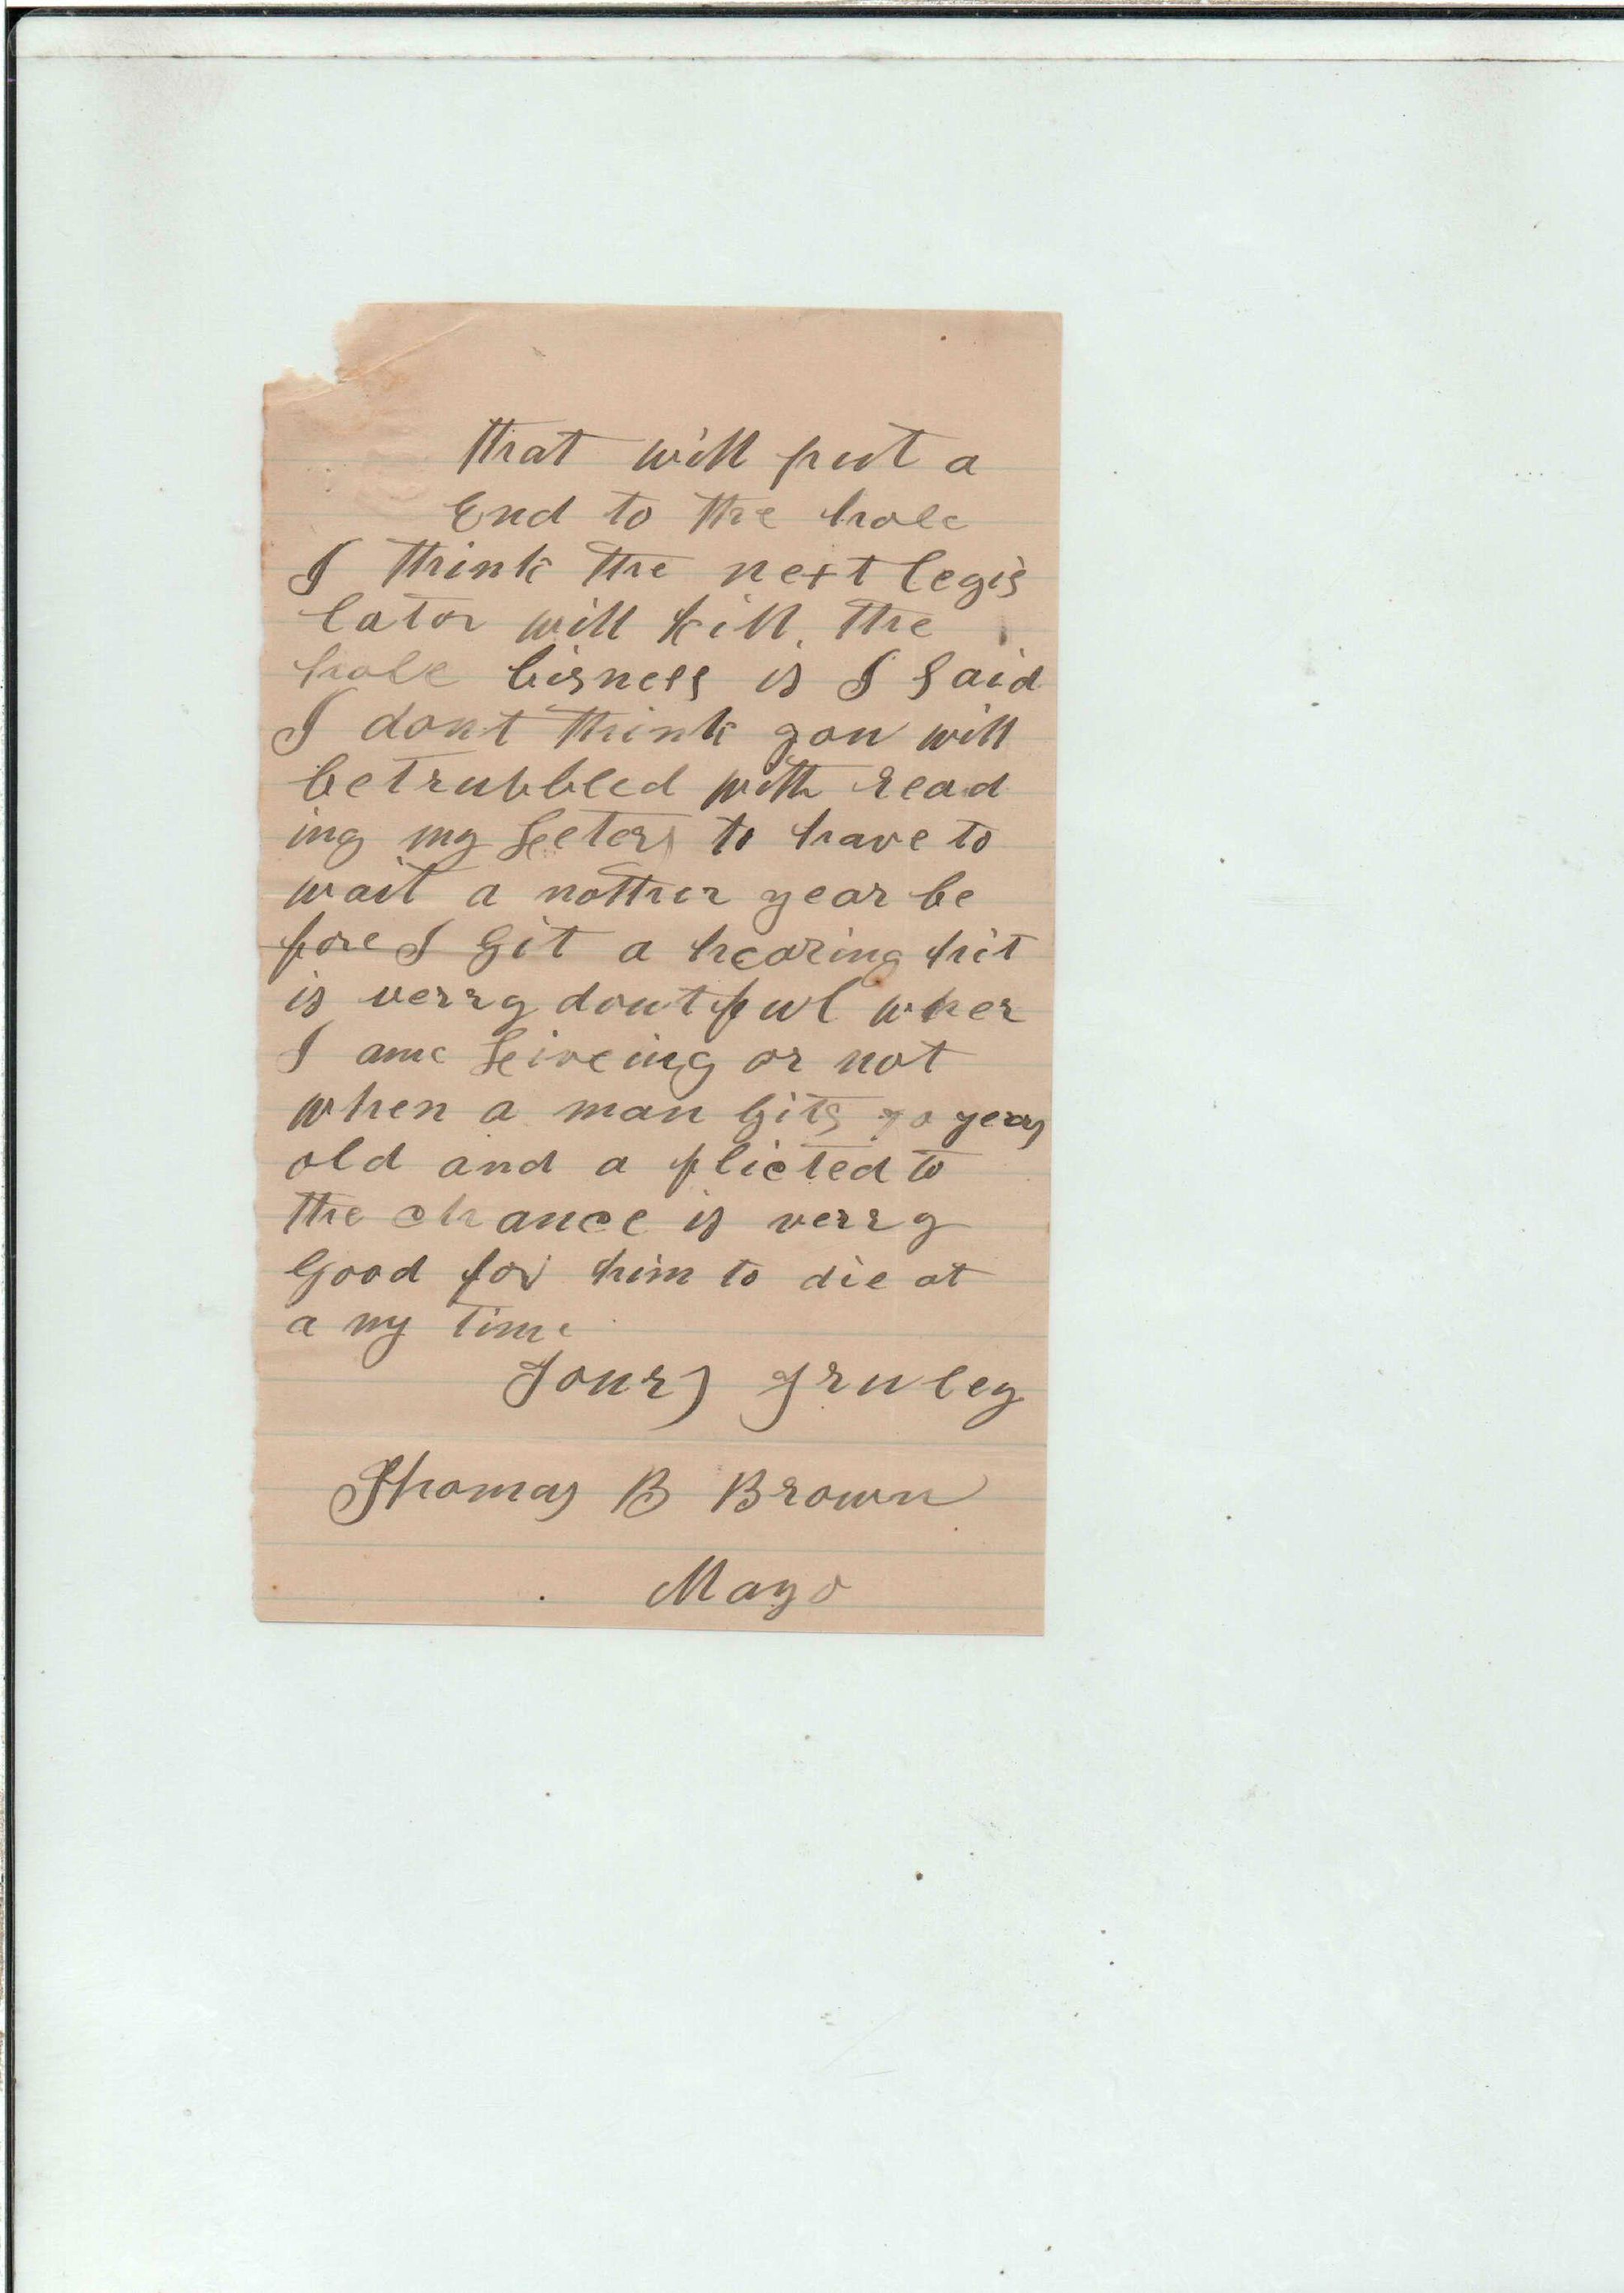 that will put a
End to the hole
I think the next legis
lator will kill the
hole bisness is I Said
I dont think you will
betrubbled with read
ing my Leters to have to
wait a nother year be
fore I Git a hearing hit
is verry doutful wher
I ame Liveing or not
when a man Gits 70 years
old and a flicted to
the chance is verry
Good for him to die at
a ny time
Yours Truley
Thomas B Brown
Mayo